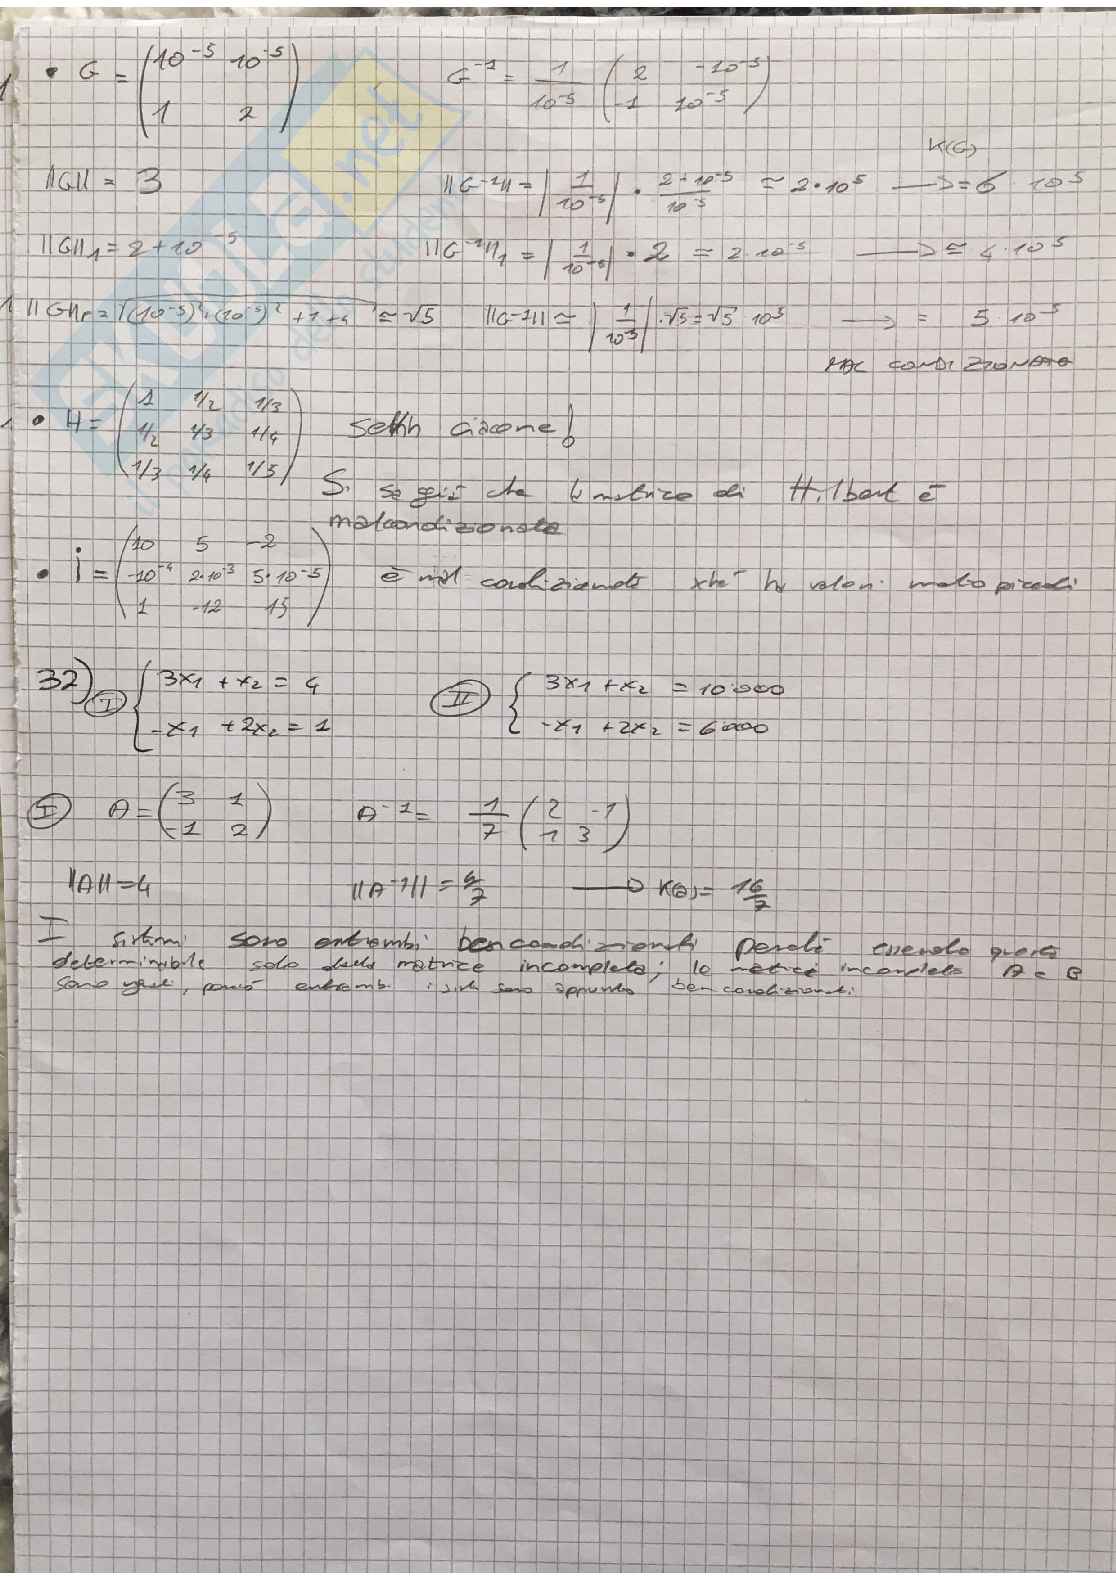 • G = (10^-5 10^-5
1 2)
G^-1 = 1/10^-5 (2 -10^-5
-1 10^-5)
K(G)
||G|| = 3 ||G^-1|| = |1/10^-5| · 2+10^-5/10^-5 ≃ 2·10^5 → = 6 · 10^5
||G||1 = 2+10^-5 ||G^-1||1 = |1/10^-5| · 2 ≃ 2·10^-5 → ≃ 4·10^5
||G||F = √(10^-5)^2+(10^-5)^2+1+4 ≃ √5 ||G^-1|| ≃ |1/10^5| ·√5 = √5 10^5 → = 5·10^5
MAL CONDIZIONATO
• H = (1 1/2 1/3
1/2 1/3 1/4
1/3 1/4 1/5)
!
Si sa già che la matrice di Hilbert è
malcondizionata
• i = (10 5 -2
-10^-4 2·10^-3 5·10^-5
1 -12 15)
è mal condizionata xhé ha valori molto piccoli
32) I { 3x1 + x2 = 4
-x1 + 2x2 = 1
II { 3x1 + x2 = 10000
-x1 + 2x2 = 6000
I A = (3 1
-1 2)
A^-1 = 1/7 (2 -1
1 3)
||A|| = 4 ||A^-1|| = 4/7 → K(A) = 16/7
I sistemi sono entrambi ben condizionati perché essendo questo
determinabile solo dalla matrice incompleta; le matrici incomplete A e B
sono uguali, perciò entrambi i sist sono appunto ben condizionati.
SKUOLA.net